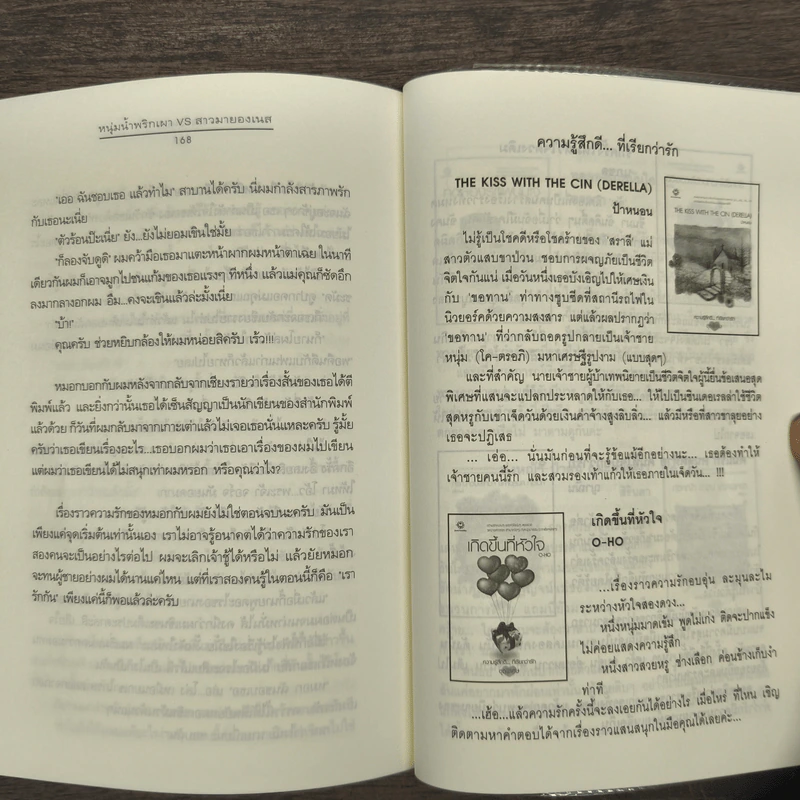 หนุ่มน้ำพริกเผา VS สาวมายองเนส
168
"เออ ฉันชอบเธอ แล้วทำไม" สาบานได้ครับ นี่ผมกำลังสารภาพรัก
กับเธอนะเนี่ย
"ตัวร้อนป๊ะเนี่ย" ยัง...ยังไม่ยอมเขินใช่มั้ย
"ก็ลองจับดูดิ" ผมคว้ามือเธอมาแตะหน้าผากผมหน้าตาเฉย ในนาที
เดียวกันผมก็เอาจมูกไปชนแก้มของเธอแรงๆ ทีหนึ่ง แล้วแม่คุณก็ซัดอึ้ก
ลงมากลางอกผม อืม...คงจะเขินแล้วล่ะมั้งเนี่ย
"บ้า!"
คุณครับ ช่วยหยิบกล้องให้ผมหน่อยสิครับ เร็ว!!!
หมอกบอกกับผมหลังจากกลับจากเชียงรายว่าเรื่องสั้นของเธอได้ตี
พิมพ์แล้ว และยิ่งกว่านั้นเธอได้เซ็นสัญญาเป็นนักเขียนของสำนักพิมพ์
แล้วด้วย ก็วันที่ผมกลับมาจากเกาะเต่าแล้วไม่เจอเธอนั่นแหละครับ รู้มั้ย
ครับว่าเธอเขียนเรื่องอะไร...เธอบอกผมว่าเธอเอาเรื่องของผมไปเขียน
แต่ผมว่าเธอเขียนได้ไม่สนุกเท่าผมหรอก หรือคุณว่าไง?
เรื่องราวความรักของหมอกกับผมยังไม่ใช่ตอนจบนะครับ มันเป็น
เพียงแค่จุดเริ่มต้นเท่านั้นเอง เราไม่อาจรู้อนาคตได้ว่าความรักของเรา
สองคนจะเป็นอย่างไรต่อไป ผมจะเลิกเจ้าชู้ได้หรือไม่ แล้วยัยหมอก
จะทนผู้ชายอย่างผมได้นานแค่ไหน แต่ที่เราสองคนรู้ในตอนนี้ก็คือ "เรา
รักกัน" เพียงแค่นี้ก็พอแล้วล่ะครับ
ความรู้สึกดี... ที่เรียกว่ารัก
THE KISS WITH THE CIN (DERELLA)
ป้าหนอน
THE KISS WITH THE CIN (DERELLA)
ไม่รู้เป็นโชคดีหรือโชคร้ายของ 'สราลี' แม่
สาวตัวแสบขาป่วน ชอบการผจญภัยเป็นชีวิต
จิตใจกันแน่ เมื่อวันหนึ่งเธอบังเอิญไปให้เศษเงิน
กับ 'ขอทาน' ท่าทางซูบซีดที่สถานีรถไฟใน
นิวยอร์คด้วยความสงสาร แต่แล้วผลปรากฏว่า
'ขอทาน' ที่ว่ากลับถอดรูปกลายเป็นเจ้าชาย
หนุ่ม (โค-ตรอภิ) มหาเศรษฐีรูปงาม (แบบสุดๆ)
และที่สำคัญ นายเจ้าชายผู้บ้าเทพนิยายเป็นชีวิตจิตใจผู้นี้ยื่นข้อเสนอสุด
พิเศษที่แสนจะแปลกประหลาดให้กับเธอ... ให้ไปเป็นซินเดอเรลล่าใช้ชีวิต
สุดหรูกับเขาเจ็ดวันด้วยเงินค่าจ้างสูงลิบลิ่ว... แล้วมีหรือที่สาวขาลุยอย่าง
เธอจะปฏิเสธ
... เอ่อ... นั่นมันก่อนที่จะรู้ข้อแม้อีกอย่างนะ... เธอต้องทำให้
เจ้าชายคนนี้รัก และสวมรองเท้าแก้วให้เธอภายในเจ็ดวัน... !!!
เกิดขึ้นที่หัวใจ
O-HO
ความรู้สึกดี... ที่เรียกว่ารัก
เกิดขึ้นที่หัวใจ
O-HO
...เรื่องราวความรักอบอุ่น ละมุนละไม
ระหว่างหัวใจสองดวง...
หนึ่งหนุ่มมาดเข้ม พูดไม่เก่ง ติดจะปากแข็ง
ไม่ค่อยแสดงความรู้สึก
หนึ่งสาวสวยหรู ช่างเลือก ค่อนข้างเก็บงำ
ท่าที
...เฮ้อ...แล้วความรักครั้งนี้จะลงเอยกันได้อย่างไร เมื่อไหร่ ที่ไหน เชิญ
ติดตามหาคำตอบได้จากเรื่องราวแสนสนุกในมือคุณได้เลยค่ะ...